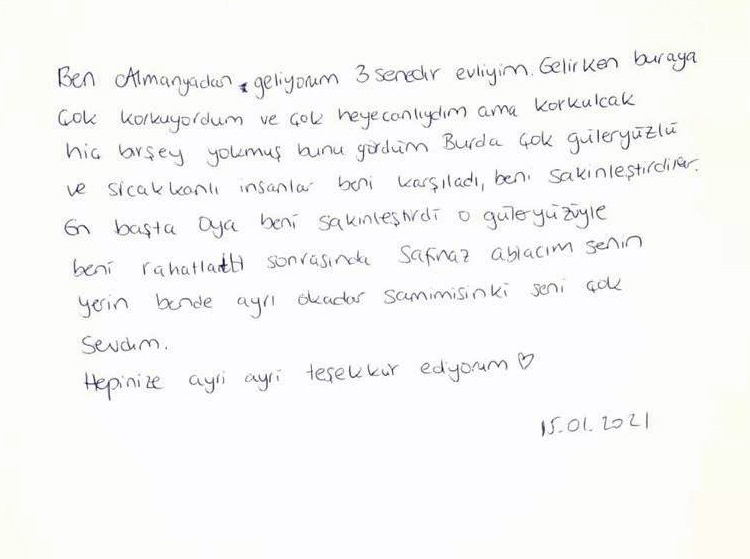 Ben Almanyadan, geliyorum 3 senedir evliyim. Gelirken buraya
Çok korkuyordum ve çok heyecanlıydım ama korkulcak
hiç birşey yokmuş bunu gördüm Burda çok güleryüzlü
ve sicakkanlı insanlar beni karşıladı, beni sakinleştirdiler.
En başta Oya beni sakinleştirdi o güleryüzüyle
beni rahatlattı sonrasında Safinaz ablacım senin
yerin bende ayrı okadar samimisinki seni çok
Sevdim.
Hepinize ayri ayri teşekkür ediyorum ♡
15.01.2021